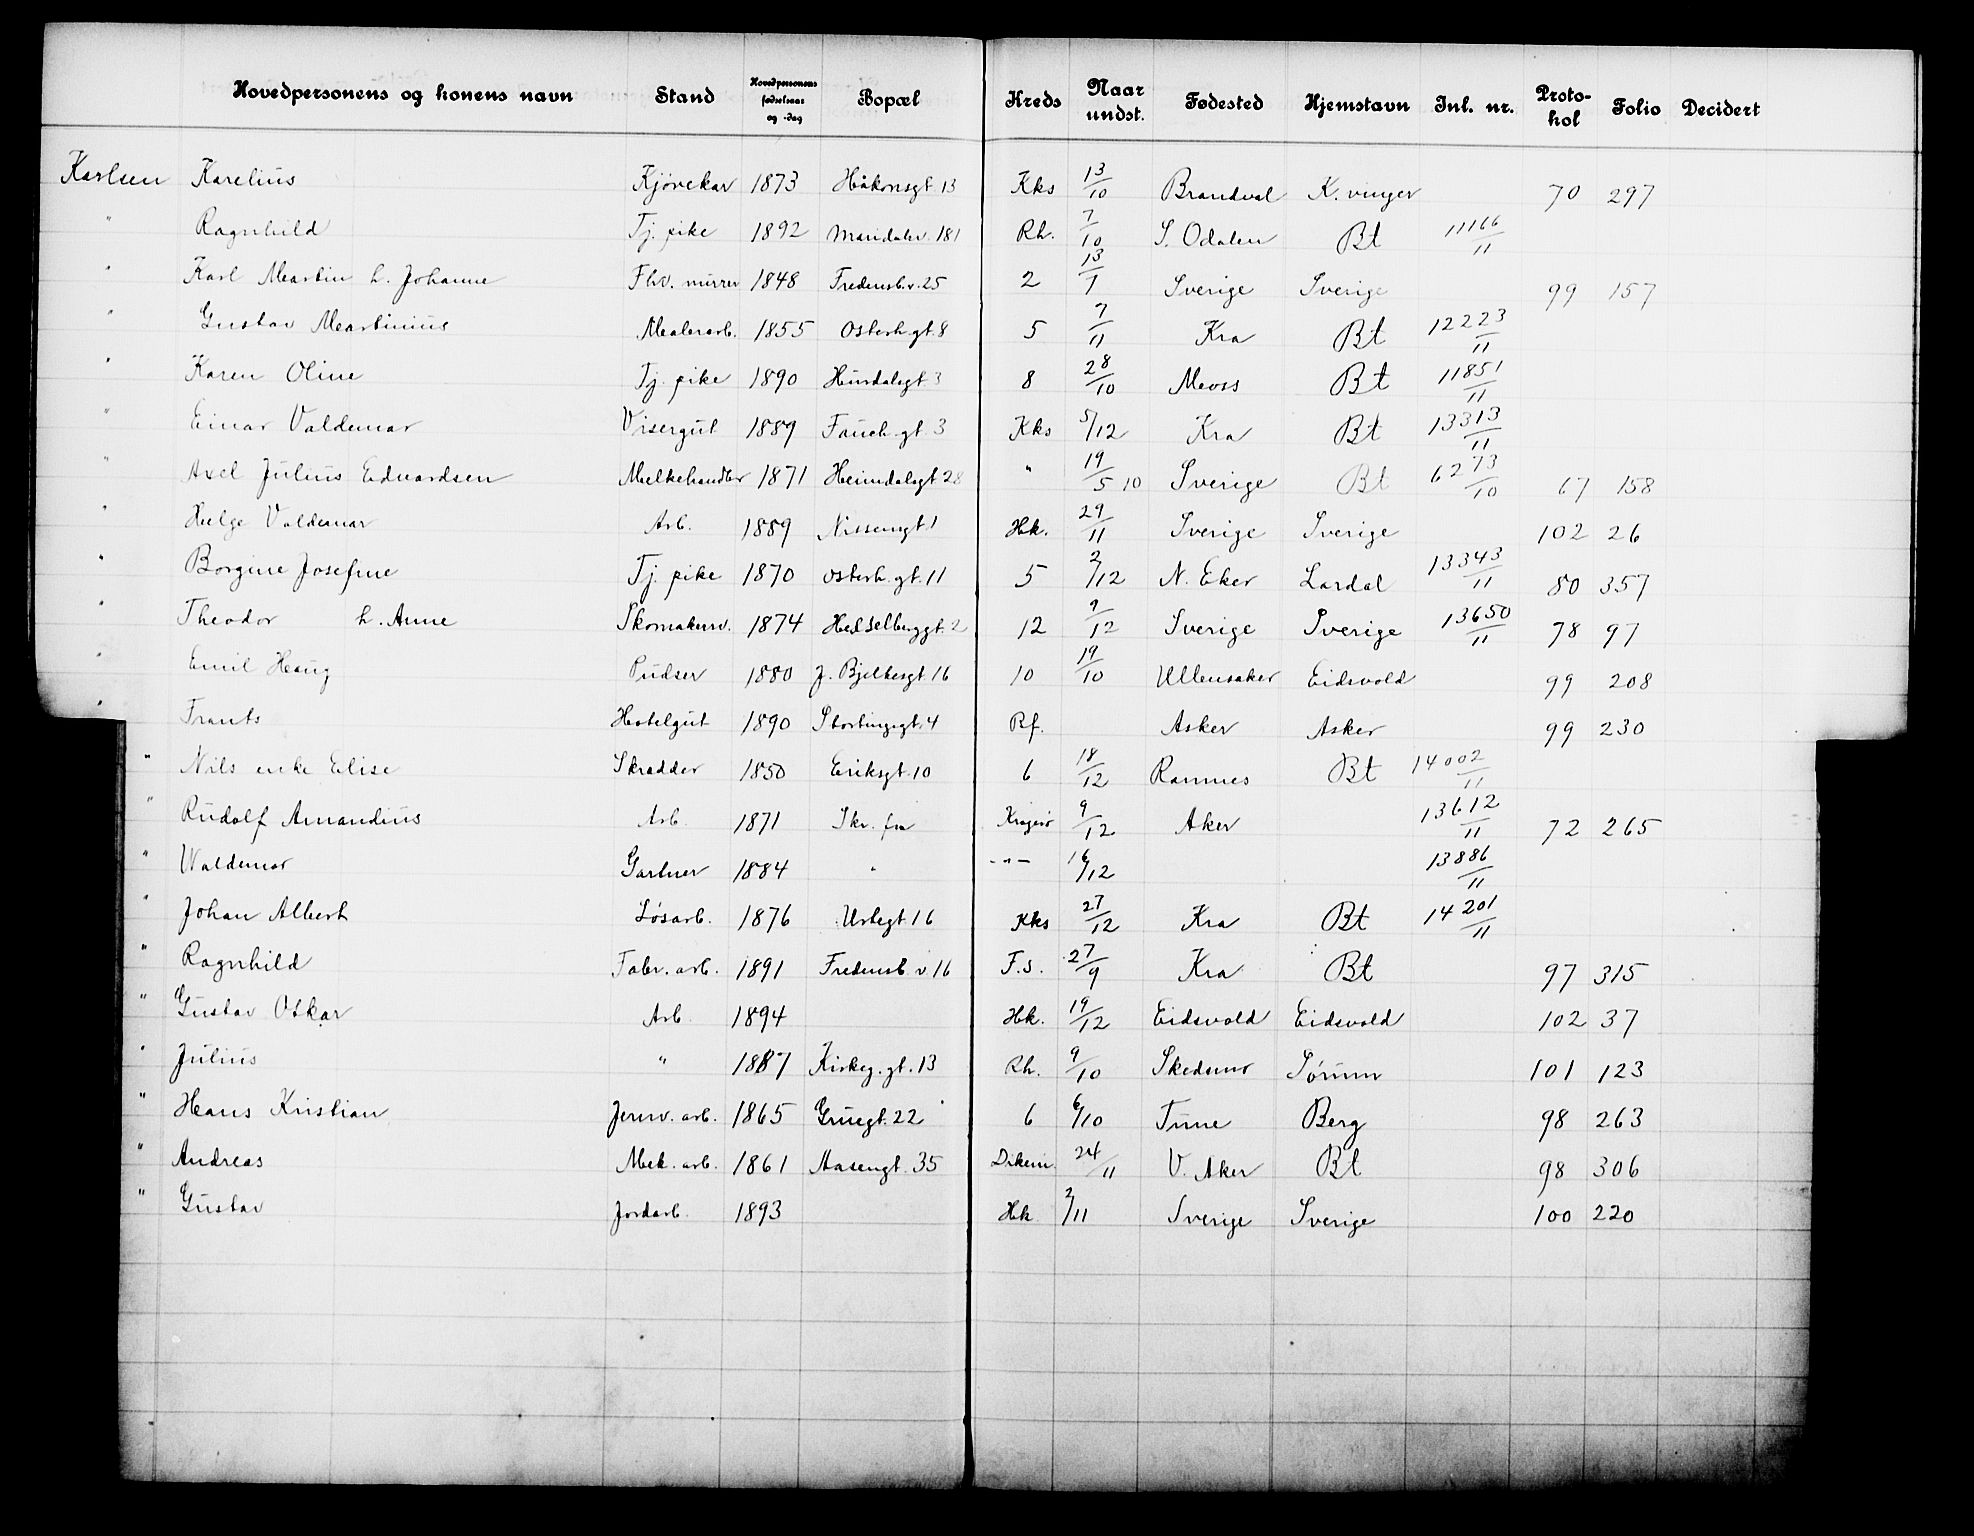 Hovedpersonens og konens navn Stand Hovedpersonens fødselsaar og -dag Bopæl Kreds Naar undst. Fødested Hjemstavn Inl. nr. Proto-kol Folio Decidert
Karlsen Karelius Kjørekar 1873 Håkonsgt 13 Kks 13/10 Brandval K.vinger 70 297
" Ragnhild Tj. pike 1892 Maridalsv. 181 Rh. 7/10 S. Odalen Bt 11166/11
" Karl Martin h. Johanne Fhv. murer 1848 Fredensb.v. 25 2 13/1 Sverige Sverige 99 157
" Gustav Martinius Malerarb. 1855 Osterh.gt. 8 5 7/11 Kra Bt 12223/11
" Karen Oline Tj. pike 1890 Hurdalsgt. 3 8 28/10 Moss Bt 11851/11
" Einar Valdemar Visergut 1889 Fauch.gt. 3 Kks 5/12 Kra Bt 13313/11
" Axel Julius Edvardsen Melkehandler 1871 Heimdalsgt 28 " 19/5 10 Sverige Bt 6273/10 67 158
" Helge Valdemar Arb. 1889 Nissengt. 1 Hk. 29/11 Sverige Sverige 102 26
" Borgine Josefine Tj. pike 1870 Osterh.gt. 11 5 2/12 N. Eker Lardal 13343/11 80 357
" Theodor h. Anne Skomakersv. 1874 Hesselberggt. 2 12 9/12 Sverige Sverige 13650/11 78 97
" Emil Haug Pudser 1880 J. Bjelkesgt. 16 10 19/10 Ullensaker Eidsvold 99 208
" Frants Hotelgut 1890 Stortingsgt. 4 Rf. Asker Asker 99 230
" Nils enke Elise Skrædder 1850 Eriksgt. 10 6 18/12 Ramnes Bt 14002/11
" Rudolf Amandius Arb. 1871 Skr. fra Kragerø 9/12 Aker 13612/11 72 265
" Waldemar Gartner 1884 " -"- 16/12 13886/11
" Johan Albert Løsarb. 1876 Urtegt. 16 Kks 27/12 Kra Bt 14201/11
" Ragnhild Fabr. arb. 1891 Fredensb.v. 16 F.s. 27/9 Kra Bt 97 315
" Gustav Oskar Arb. 1894 Hk. 19/12 Eidsvold Eidsvold 102 37
" Julius " 1887 Kirkeg.gt. 13 Rh. 9/10 Skedsmo Sørum 101 123
" Hans Kristian Jernv. arb. 1865 Gruegt. 22 6 6/10 Tune Berg 98 263
" Andreas Mek. arb. 1861 Aasengt. 35 Dikem. 24/11 V. Aker Bt 98 306
" Gustav Jordarb. 1893 Hk. 2/11 Sverige Sverige 100 220